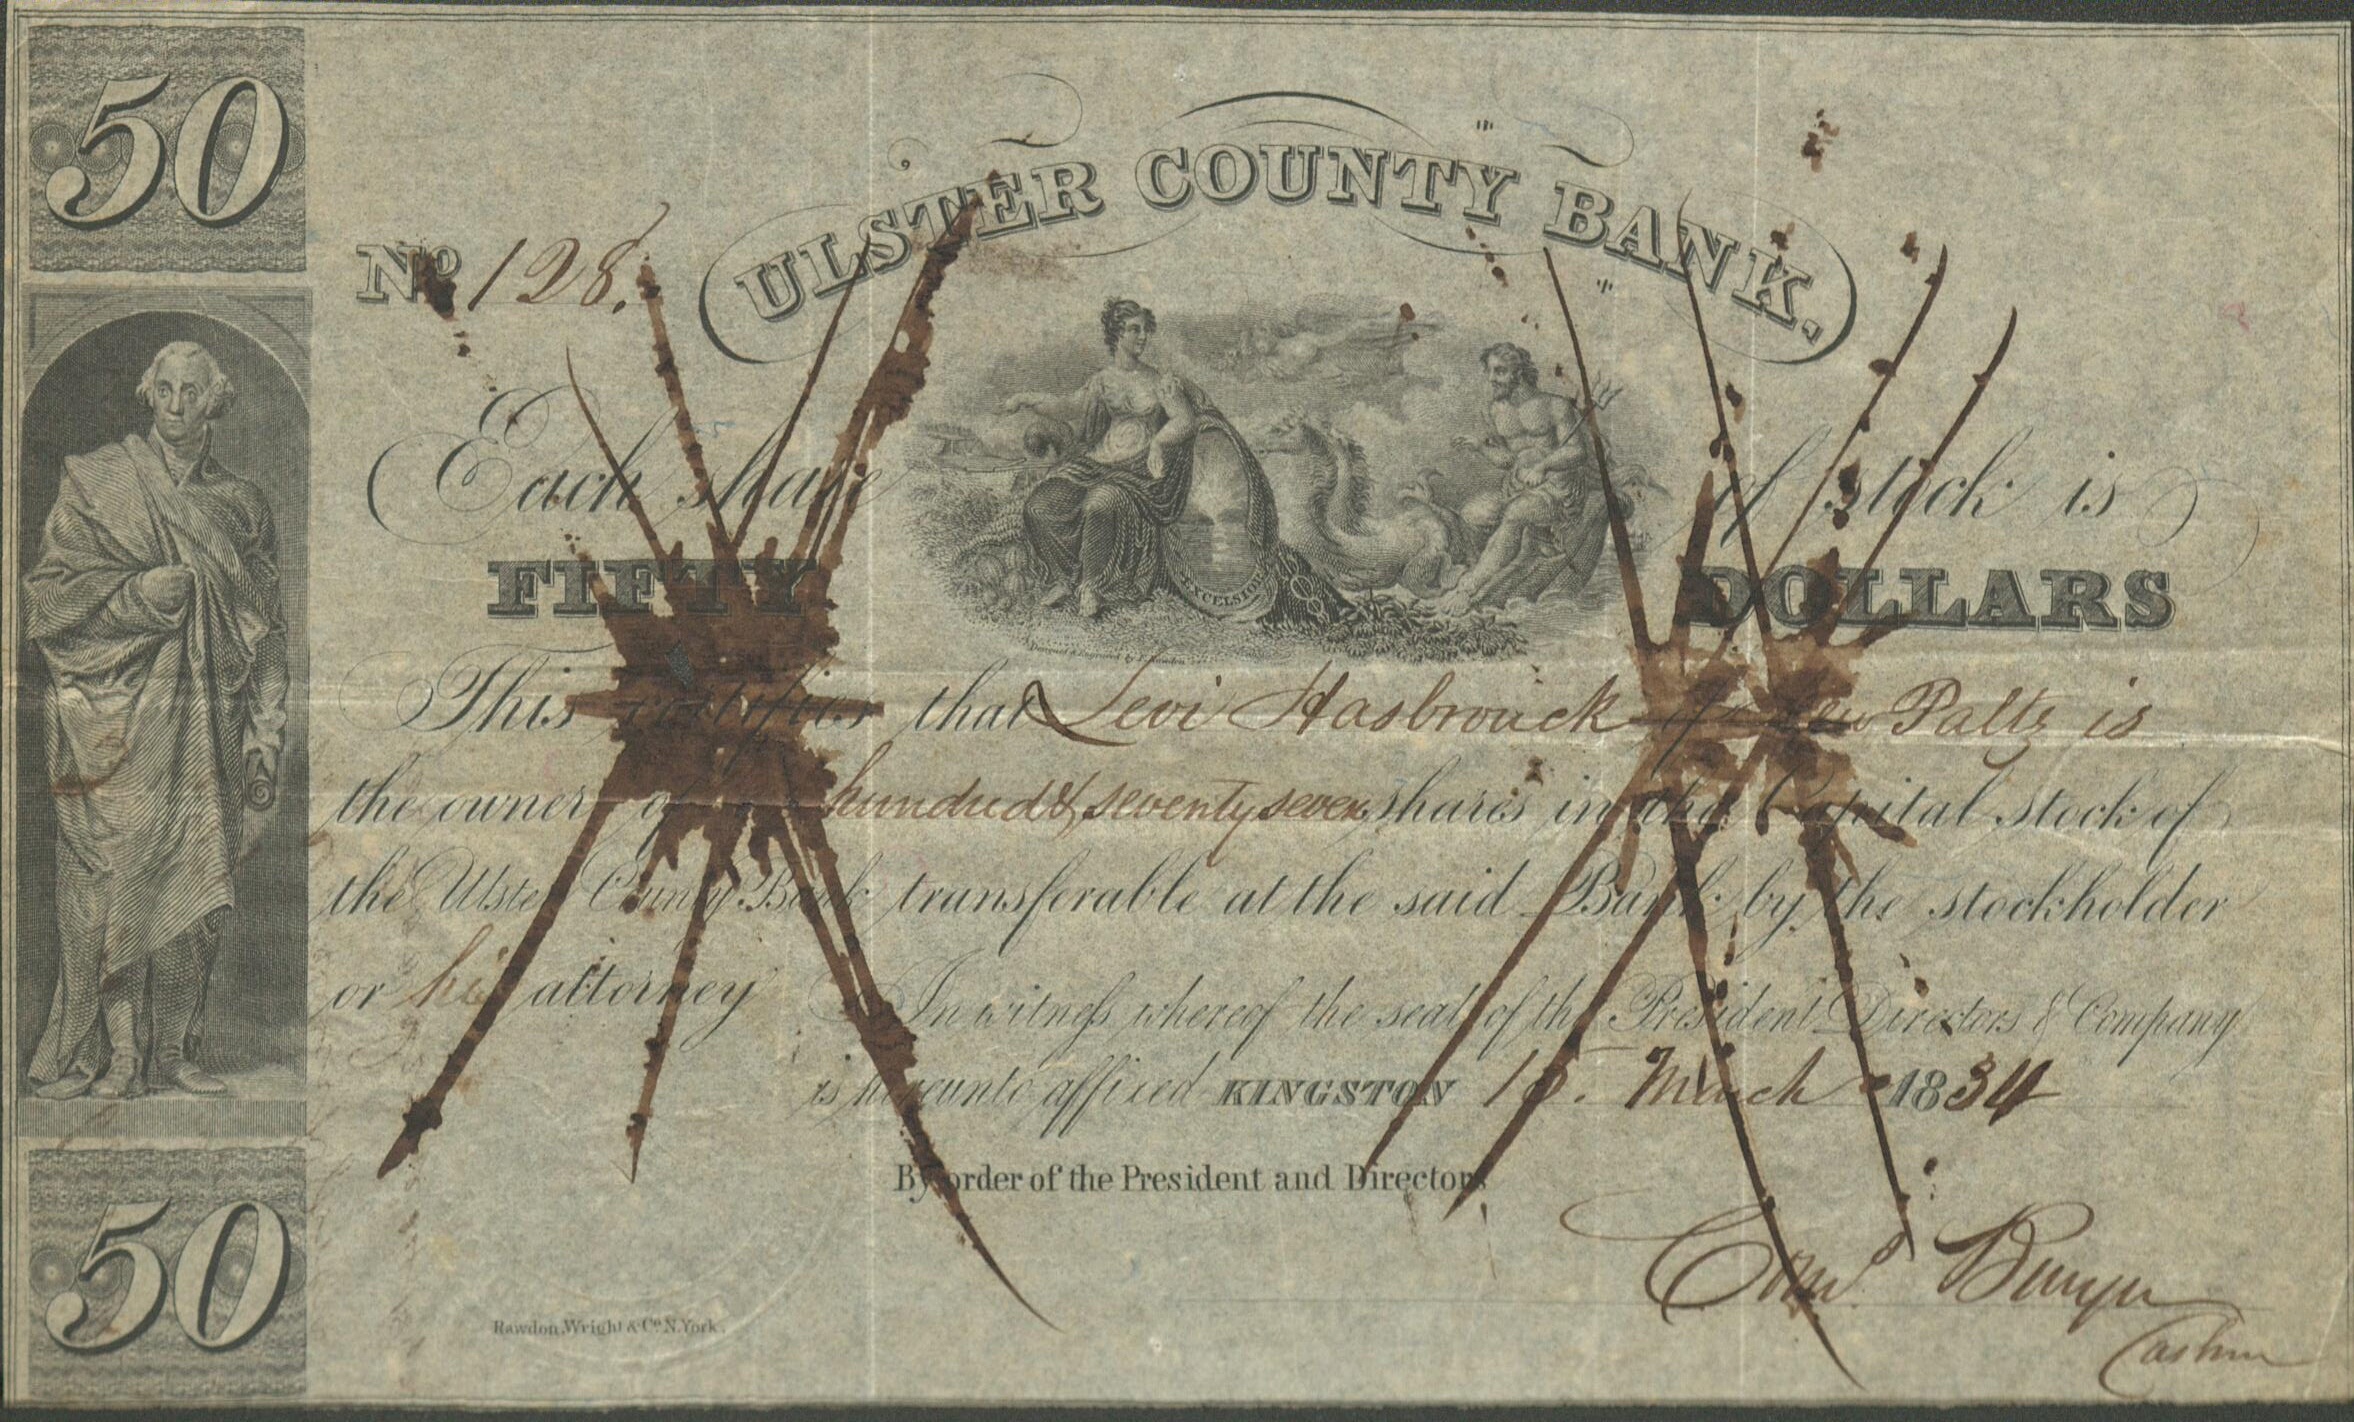 50
ULSTER COUNTY BANK.
No 128.
Each share of stock is
FIFTY DOLLARS
EXCELSIOR
This certifies that Levi Hasbrouck of New Paltz is
the owner of hundred & seventy seven shares in the Capital Stock of
the Ulster County Bank transferable at the said Bank by the stockholder
or his attorney In witness whereof the seal of the President Directors & Company
is hereunto affixed KINGSTON March 1834
By order of the President and Directors
Corns. Bruyn
Cashier
50
Rawdon, Wright & Co. N. York.